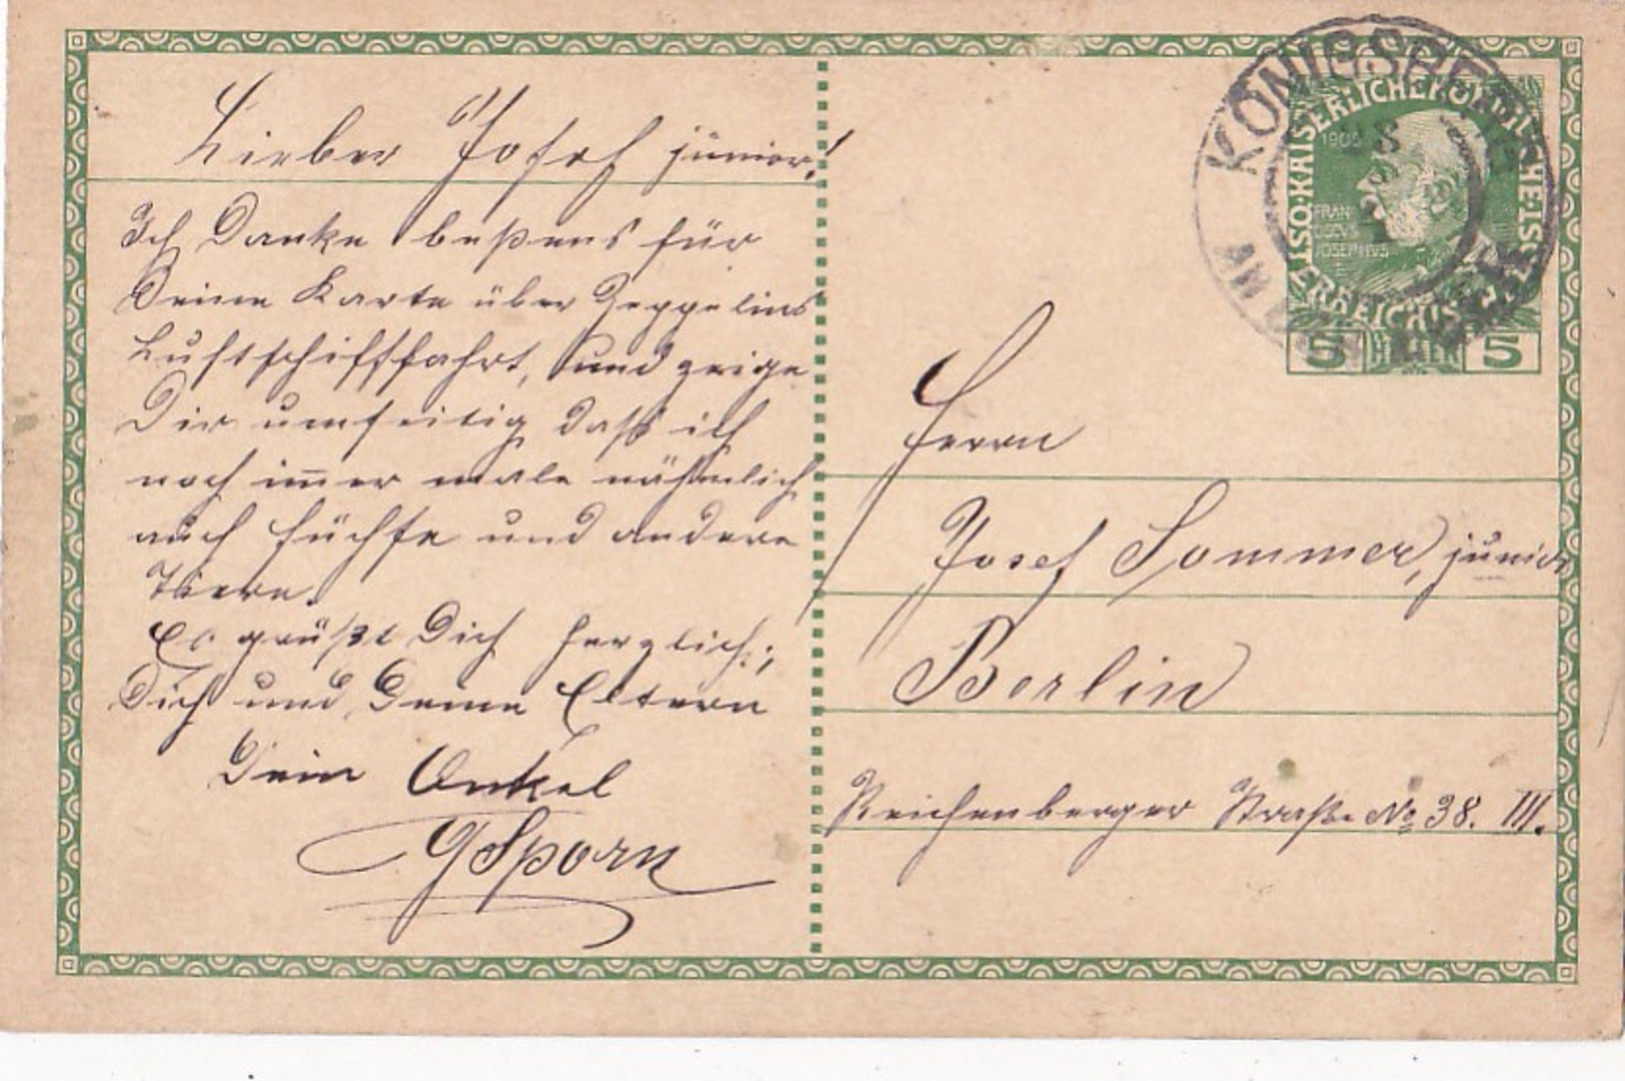 Lieber Josef junior!
Ich Danke beßens für
Deine Karte über Zeppelins
Luftschifffahrt, und zeige
Dir umseitig daß ich
noch im̄er male nähmlich
auch Füchse und andere
Tiere.
Es grüßt Dich herzlich;
Dich und Deine Eltern
Dein Onkel
GSporn
KÖNIGSBERG
AN DER EGER
KAISERLICHE KÖNIGLICHE
ÖSTERREICHISCHE
1908
FRAN
JOSEPHVS
5 HELLER 5
Herrn
Josef Sommer, junior
Berlin
Reichenberger Straße No 38. III.